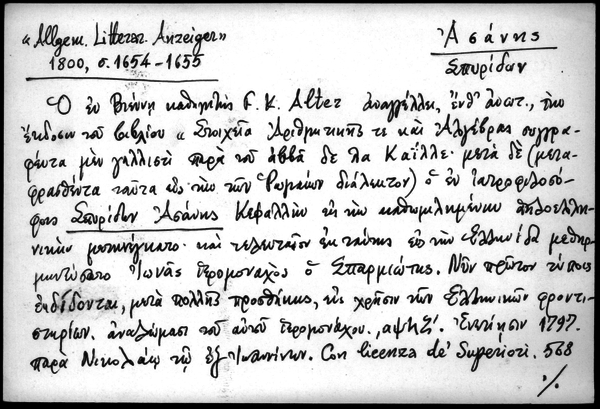 «Allgem. Litterar. Anzeiger»
1800, σ. 1654-1655
Ἀσάνης
Σπυρίδων
Ὁ ἐν Βιέννῃ καθηγητὴς F. K. Alter ἀναγγέλλει, ἐνθ' ἀνωτ., τὴν
ἔκδοσιν τοῦ βιβλίου « Στοιχεῖα Ἀριθμητικῆς τε καὶ Ἀλγέβρας συγγρα-
φέντα μὲν γαλλιστὶ παρὰ τοῦ ἀββᾶ δε λα Καΐλλε· μετὰ δὲ (μετα-
φρασθέντα ταῦτα εἰς τὴν τῶν Ῥωμαίων διάλεκτον) ὁ ἐν ἰατροφιλοσό-
φοις Σπυρίδων Ἀσάνης Κεφαλλὴν εἰς τὴν καθωμιλημένην ἁπλοελλη-
νικὴν μετήνεγκατο· καὶ τελευταῖον ἐκ ταύτης εἰς τὴν Ἑλληνίδα μεθηρ-
μηνεύσατο Ἰωνᾶς ἱερομόναχος ὁ Σπαρμιώτης. Νῦν πρῶτον τύποις
ἐκδίδονται, μετὰ πολλῆς προσθήκης, εἰς χρῆσιν τῶν Ἑλληνικῶν φροντι-
στηρίων. ἀναλώμασι τοῦ αὐτοῦ ἱερομονάχου. ͵αψϟζʹ. Ἐνετίησιν 1797.
παρὰ Νικολάῳ τῷ ἐξ Ἰωαννίνων. Con licenza de' Superiori. 568
·/.